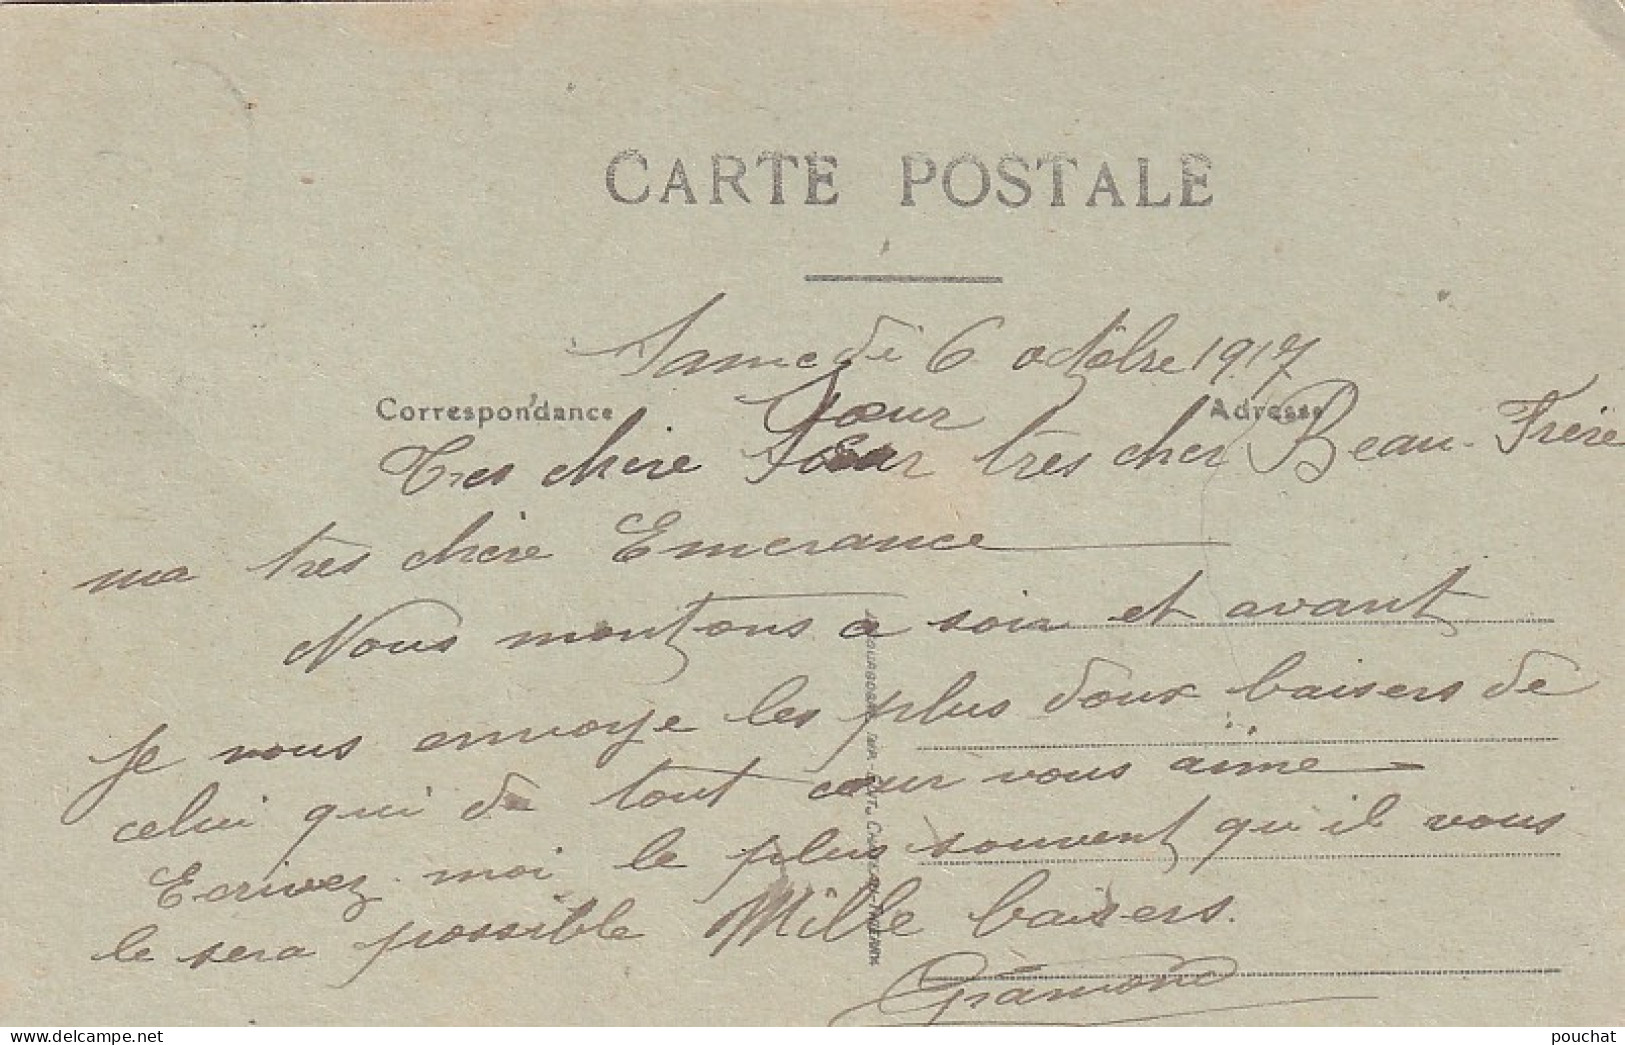 CARTE POSTALE
Samedi 6 octobre 1917
Correspondance
Adresse
Sœur
Très chère Sœur très cher Beau-Frère
ma très chère Emerance
Nous montons a soir et avant
je vous envoye les plus doux baisers de
celui qui de tout cœur vous aime
Ecrivez moi le plus souvent qu'il vous
le sera possible Mille baisers.
pouchat